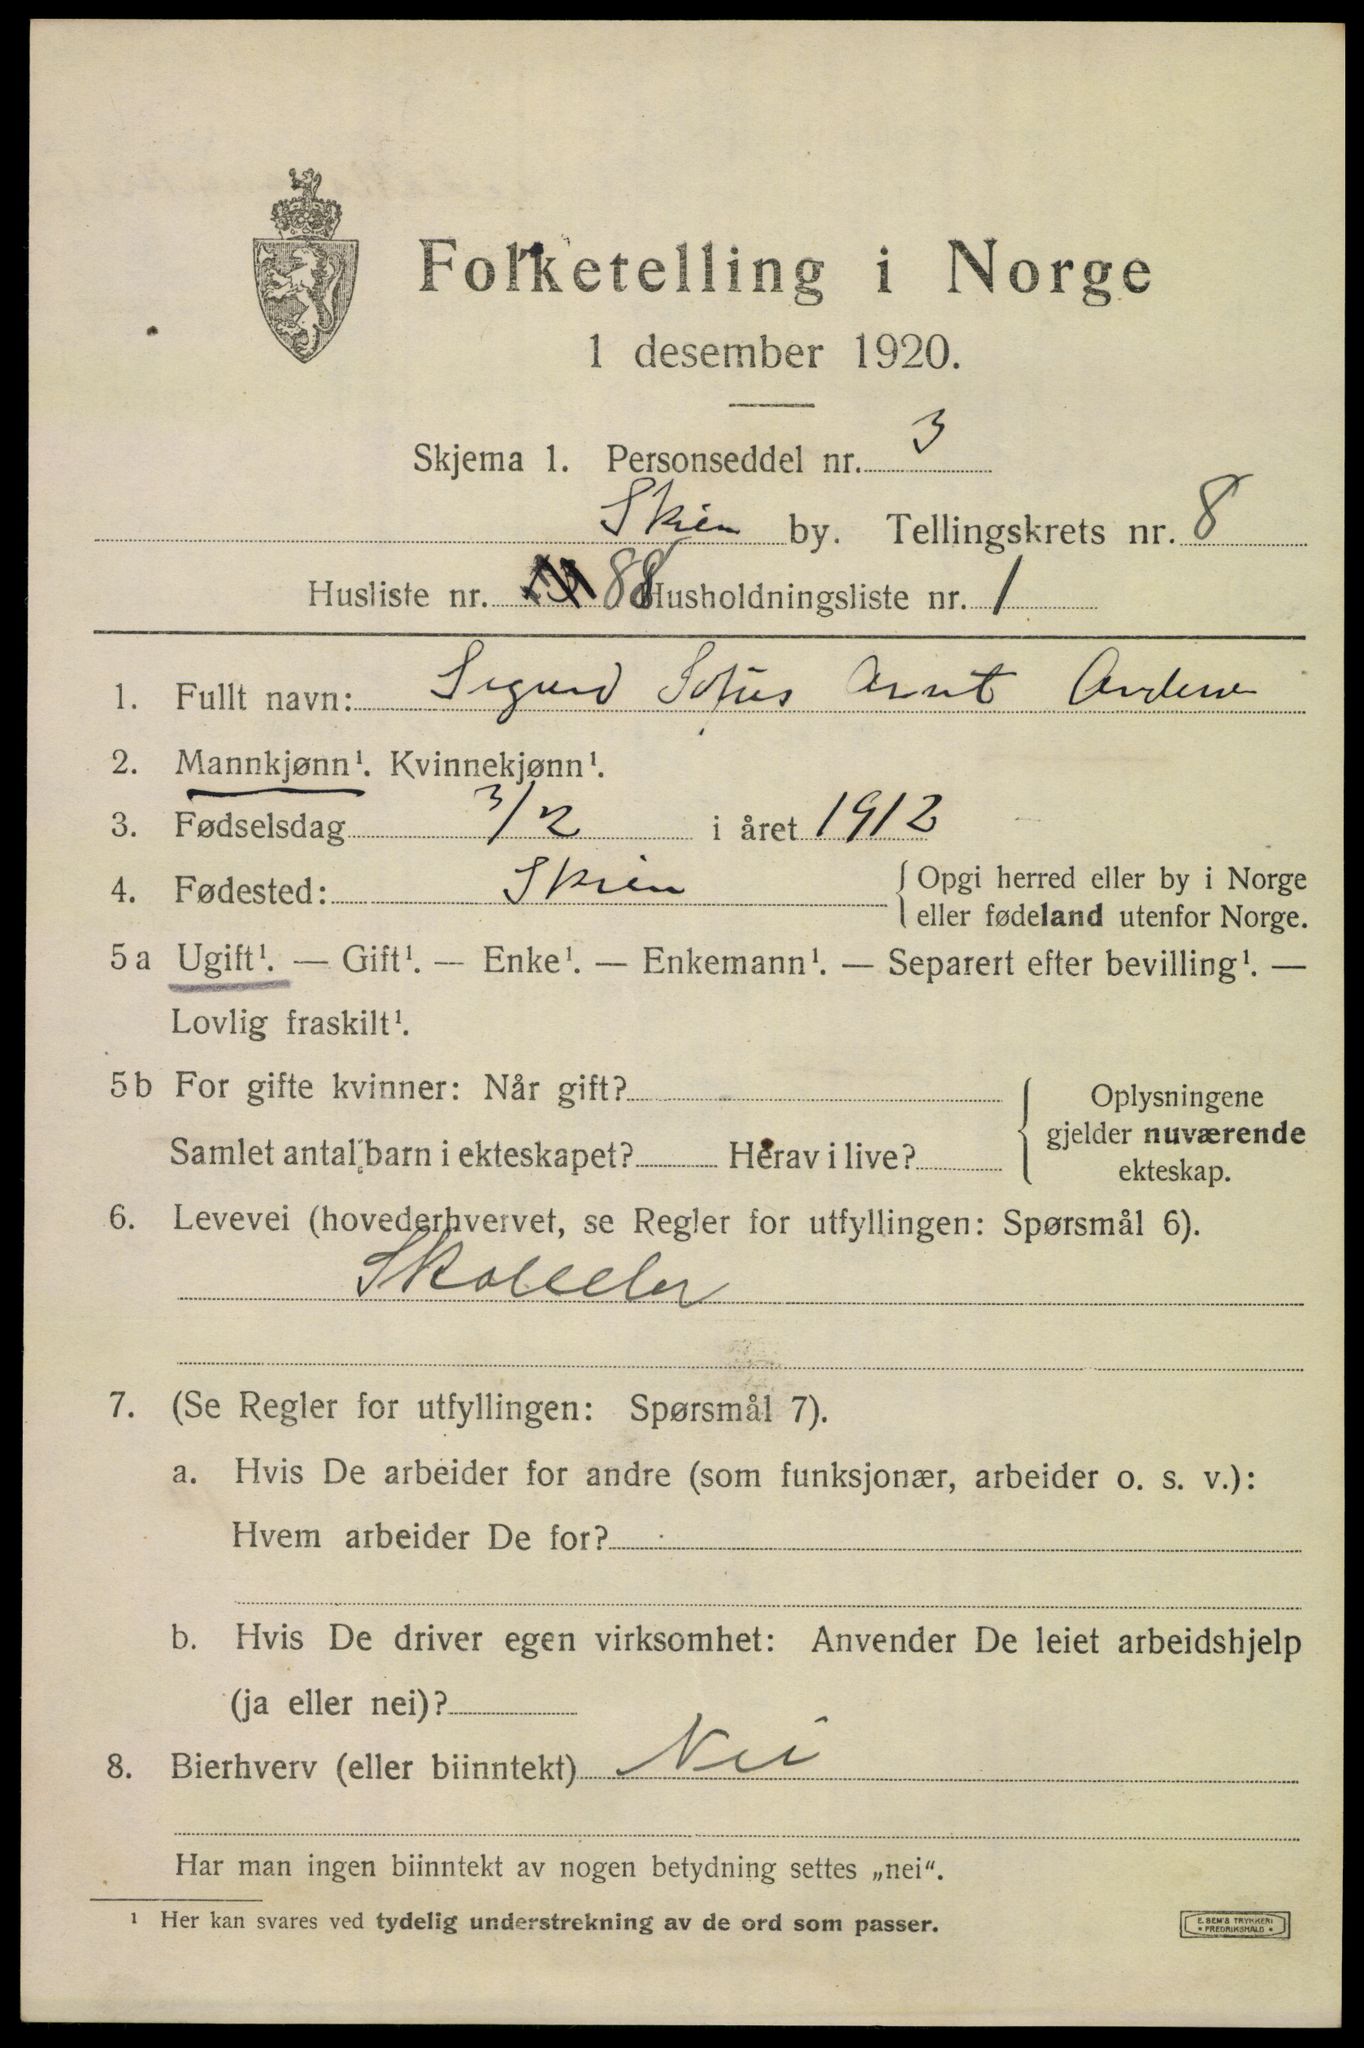 Folketelling i Norge
1 desember 1920.
Skjema 1. Personseddel nr. 3
Skien by. Tellingskrets nr. 8
Husliste nr. 88 Husholdningsliste nr. 1
1. Fullt navn: Sigurd Sofus Arnt Andersen
2. Mannkjønn¹. Kvinnekjønn¹.
3. Fødselsdag 3/2 i året 1912
4. Fødested: Skien { Opgi herred eller by i Norge
eller fødeland utenfor Norge.
5 a Ugift¹. — Gift¹. — Enke¹. — Enkemann¹. — Separert efter bevilling¹. —
Lovlig fraskilt¹.
5 b For gifte kvinner: Når gift?
Samlet antal barn i ekteskapet? Herav i live?
Oplysningene
gjelder nuværende
ekteskap.
6. Levevei (hovederhvervet, se Regler for utfyllingen: Spørsmål 6).
Skoleelev
7. (Se Regler for utfyllingen: Spørsmål 7).
a. Hvis De arbeider for andre (som funksjonær, arbeider o. s. v.):
Hvem arbeider De for?
b. Hvis De driver egen virksomhet: Anvender De leiet arbeidshjelp
(ja eller nei)?
8. Bierhverv (eller biinntekt) Nei
Har man ingen biinntekt av nogen betydning settes „nei“.
¹ Her kan svares ved tydelig understrekning av de ord som passer.
E. SEM'S TRYKKERI
• FREDRIKSHALD •